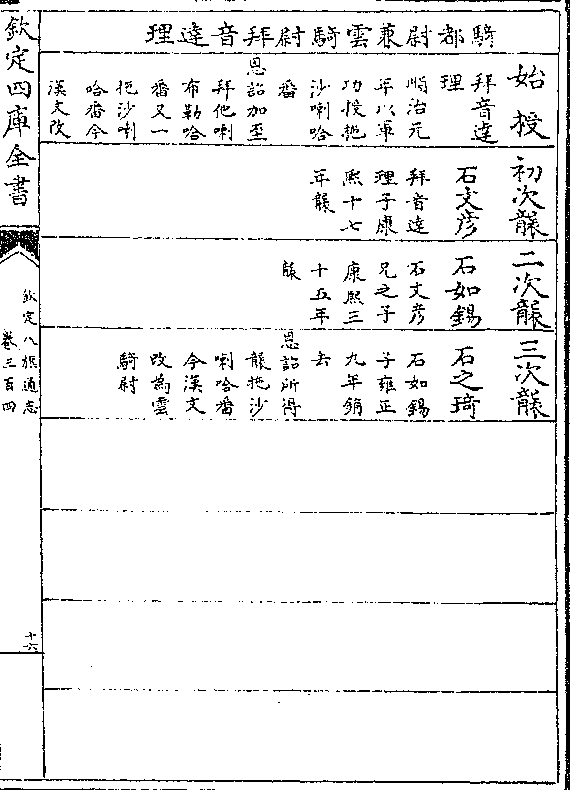 騎都尉兼雲騎尉拜音達理
始授
拜音達
理
順治元
年以軍
功授拖
沙喇哈
番
恩詔加至
拜他喇
布勒哈
番又一
拖沙喇
哈番今
漢文改
初次襲
石文彥
拜音達
理子康
熙十七
年襲
二次襲
石如錫
石文彥
兄之子
康熙三
十五年
襲
三次襲
石之琦
石如錫
子雍正
九年銷
去
恩詔所得
襲拖沙
喇哈番
今漢文
改為雲
騎尉
欽定四庫全書
欽定八旗通志
卷三百四
十六